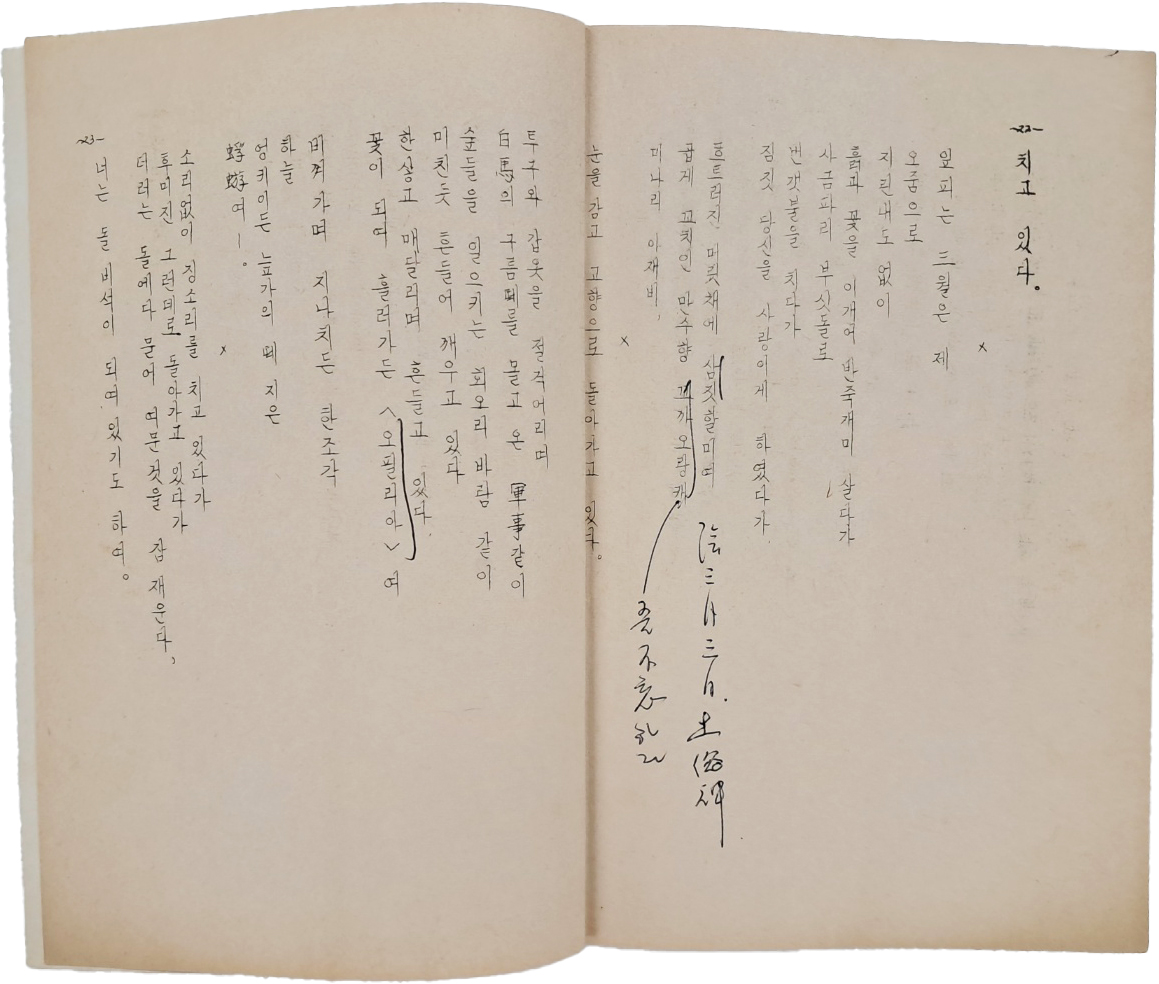 -22-
치고 있다。
×
잎피는 三월은 제
오줌으로
지린내도 없이
흙과 꽃을 이개어 반죽개미 살다가
사금파리 부싯돌로
번갯불을 치다가
짐짓 당신을 사랑이게 하였다가
흐트러진 머릿채에 삼짓할미여
곱게 꼬치인 만수향 꼬까오랑캐
미나리 아재비,
陰三月三日. 土俗神
×
눈을 감고 고향으로 돌아가고 있다。
투구와 갑옷을 절걱어리며
白馬의 구름떼를 몰고 온 軍事같이
숲들을 일으키는 회오리 바람 같이
미친듯 흔들어 깨우고 있다
한상고 매달리며 흔들고 있다
꽃이 되여 흘러가든 <오필리아> 여
비껴가며 지나치든 한조각
하늘
엉키이든 늪가의 떼 지은
蜉蝣여ー。
×
소리없이 징소리를 치고 있다가
후미진 그런데로 돌아가고 있다가
더러는 돌에다 물어 여문것을 잠 재운다,
너는 돌 비석이 되여있기도 하여。
-23-